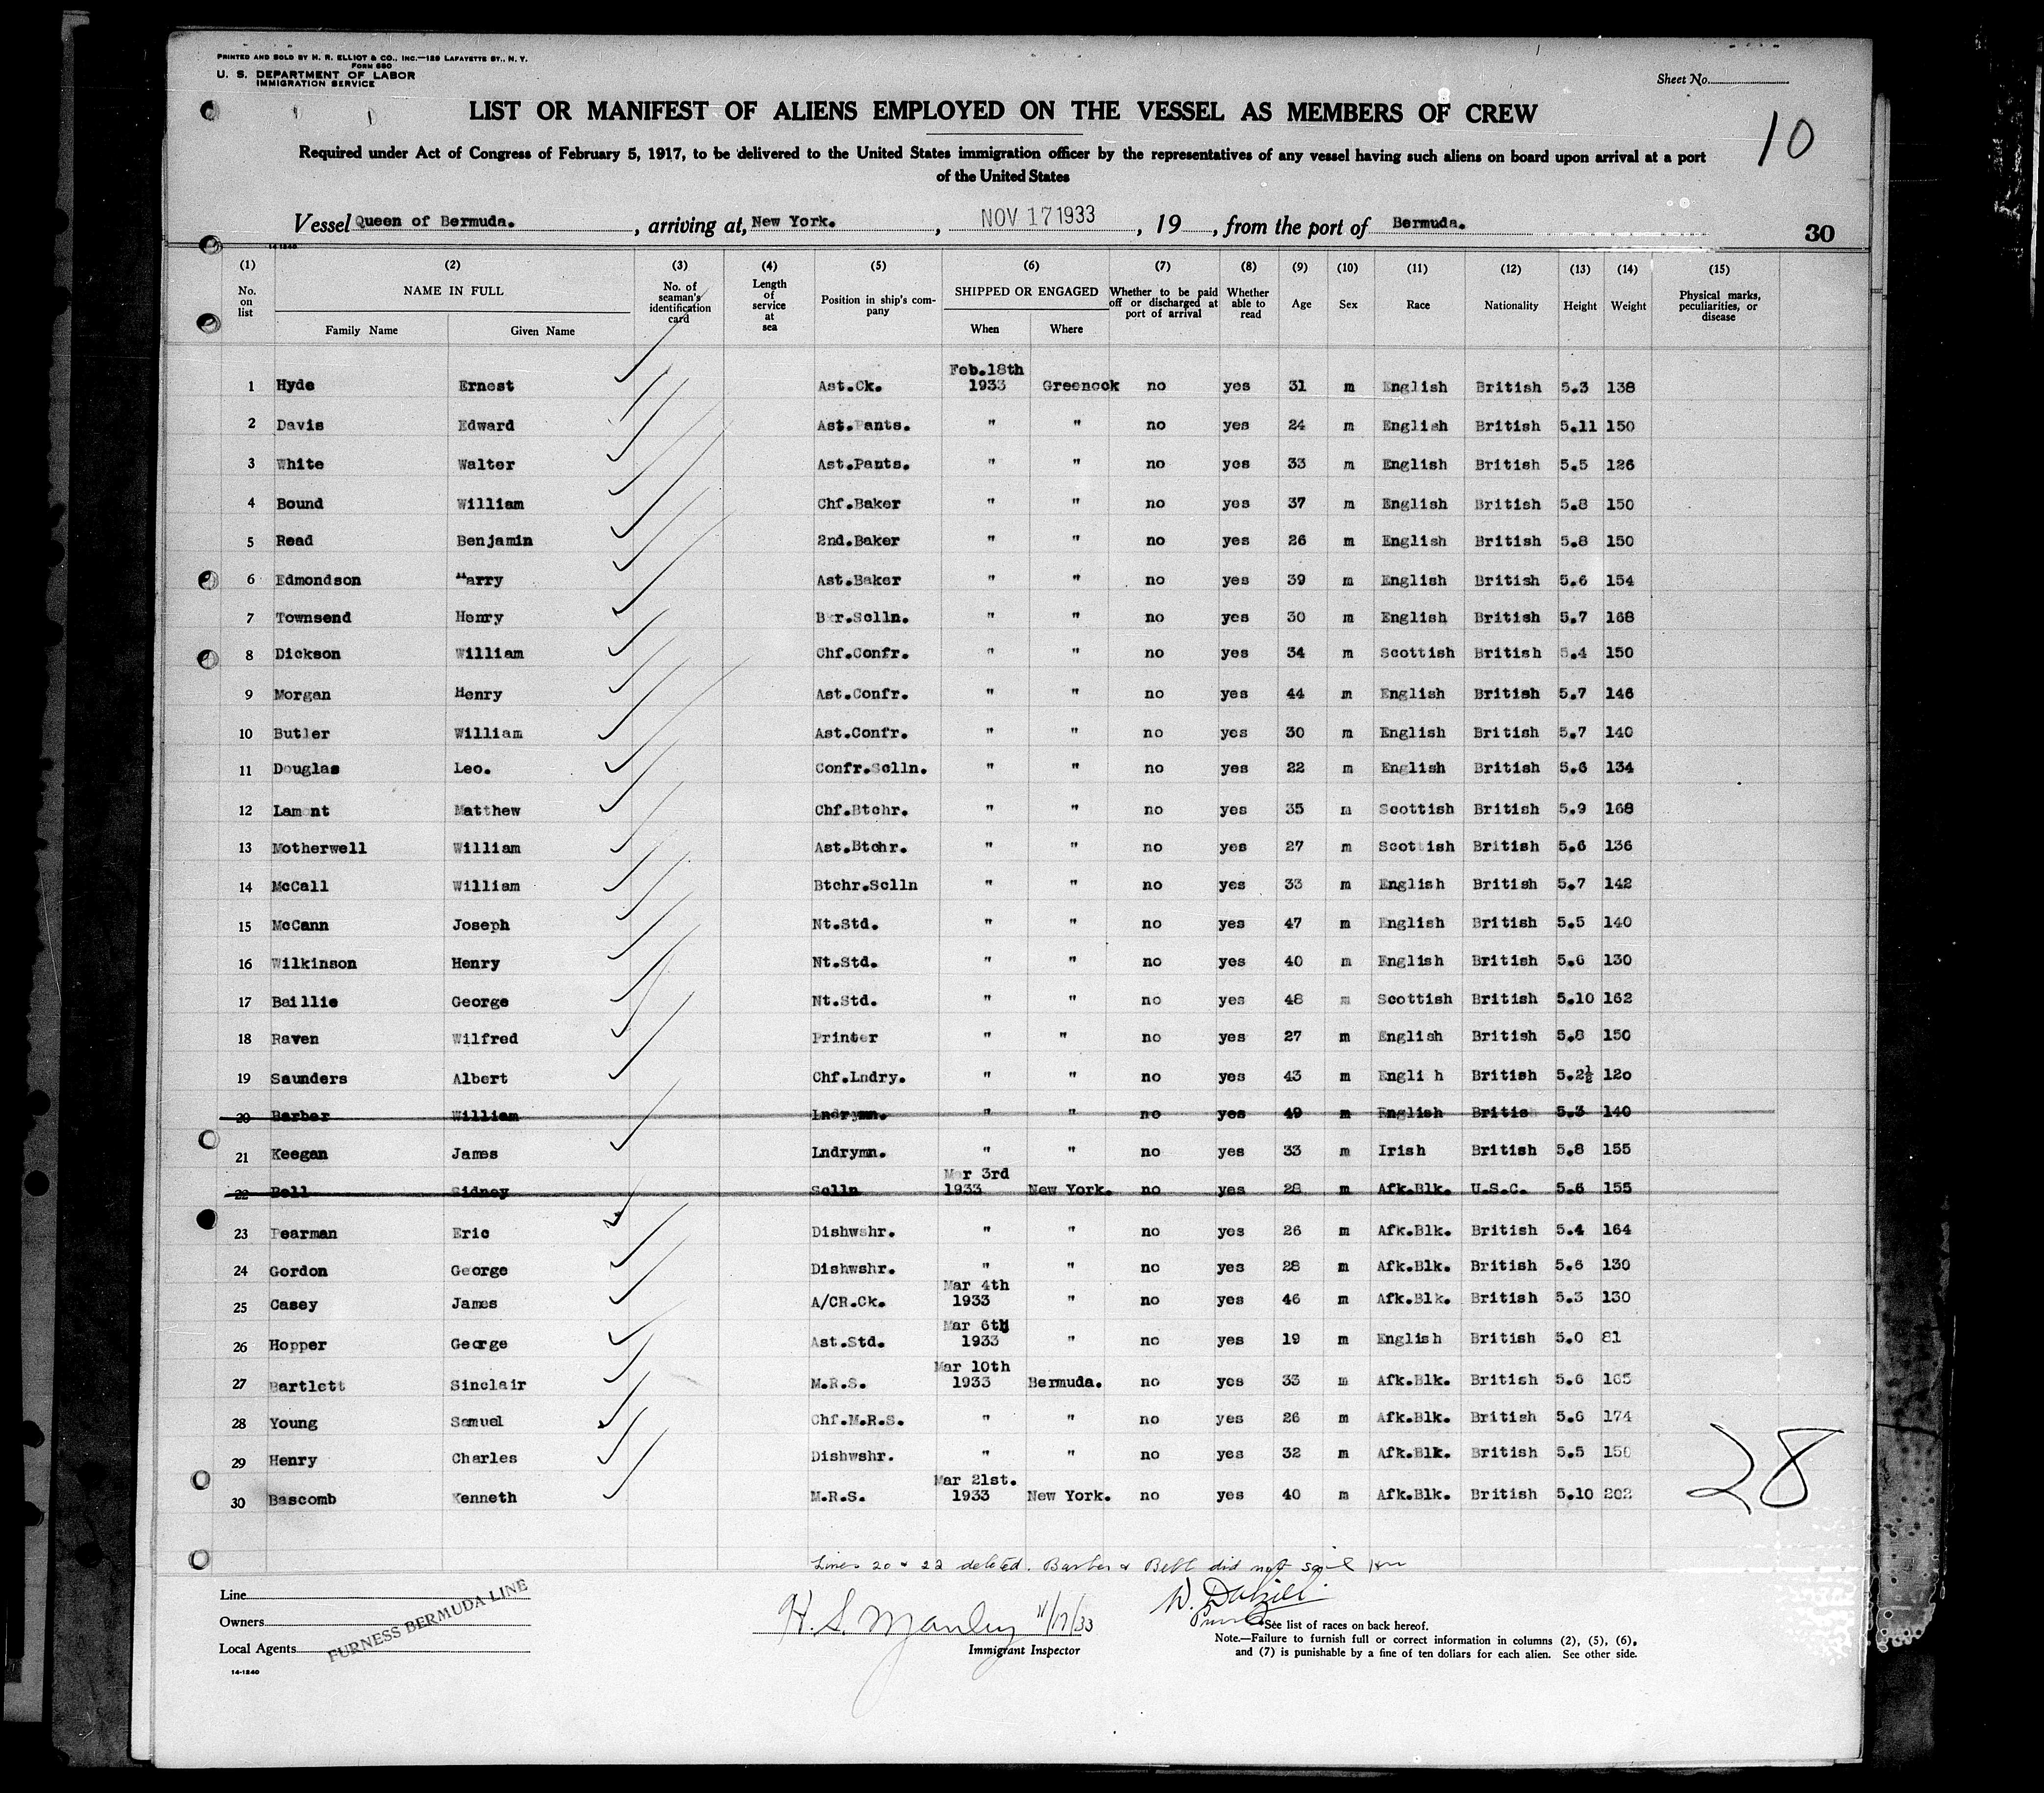 PRINTED AND SOLD BY H. R. ELLIOT & CO., INC.—129 LAFAYETTE ST., N. Y.
FORM 680
U. S. DEPARTMENT OF LABOR
IMMIGRATION SERVICE
Sheet No.
LIST OR MANIFEST OF ALIENS EMPLOYED ON THE VESSEL AS MEMBERS OF CREW
10
Required under Act of Congress of February 5, 1917, to be delivered to the United States immigration officer by the representatives of any vessel having such aliens on board upon arrival at a port
of the United States
Vessel Queen of Bermuda. , arriving at, New York. , NOV 17 1933 , 19 , from the port of Bermuda. 30
14-1240
(1) (2) (3) (4) (5) (6) (7) (8) (9) (10) (11) (12) (13) (14) (15)
No. on list NAME IN FULL No. of seaman's identification card Length of service at sea Position in ship's company SHIPPED OR ENGAGED Whether to be paid off or discharged at port of arrival Whether able to read Age Sex Race Nationality Height Weight Physical marks, peculiarities, or disease
Family Name Given Name When Where
Feb.18th
1 Hyde Ernest Ast.Ck. 1933 Greenock no yes 31 m English British 5.3 138
2 Davis Edward Ast.Pants. " " no yes 24 m English British 5.11 150
3 White Walter Ast.Pants. " " no yes 33 m English British 5.5 126
4 Bound William Chf.Baker " " no yes 37 m English British 5.8 150
5 Read Benjamin 2nd.Baker " " no yes 26 m English British 5.8 150
6 Edmondson Harry Ast.Baker " " no yes 39 m English British 5.6 154
7 Townsend Henry Bkr.Sclln. " " no yes 30 m English British 5.7 168
8 Dickson William Chf.Confr. " " no yes 34 m Scottish British 5.4 150
9 Morgan Henry Ast.Confr. " " no yes 44 m English British 5.7 146
10 Butler William Ast.Confr. " " no yes 30 m English British 5.7 140
11 Douglas Leo. Confr.Sclln. " " no yes 22 m English British 5.6 134
12 Lamont Matthew Chf.Btchr. " " no yes 35 m Scottish British 5.9 168
13 Motherwell William Ast.Btchr. " " no yes 27 m Scottish British 5.6 136
14 McCall William Btchr.Sclln " " no yes 33 m English British 5.7 142
15 McCann Joseph Nt.Std. " " no yes 47 m English British 5.5 140
16 Wilkinson Henry Nt.Std. " " no yes 40 m English British 5.6 130
17 Baillie George Nt.Std. " " no yes 48 m Scottish British 5.10 162
18 Raven Wilfred Printer " " no yes 27 m English British 5.8 150
19 Saunders Albert Chf.Lndry. " " no yes 43 m Engli h British 5.2½ 120
20 Barber William Lndrymn. " " no yes 49 m English Britis 5.3 140
21 Keegan James Lndrymn. " " no yes 33 m Irish British 5.8 155
Mar 3rd
22 Bell Sidney Sclln 1933 New York. no yes 28 m Afk.Blk. U.S.C. 5.6 155
23 Pearman Eric Dishwshr. " " no yes 26 m Afk.Blk. British 5.4 164
24 Gordon George Dishwshr. " " no yes 28 m Afk.Blk. British 5.6 130
Mar 4th
25 Casey James A/CR.Ck. 1933 " no yes 46 m Afk.Blk. British 5.3 130
Mar 6th
26 Hopper George Ast.Std. 1933 " no yes 19 m English British 5.0 81
Mar 10th
27 Bartlett Sinclair M.R.S. 1933 Bermuda. no yes 33 m Afk.Blk. British 5.6 165
28 Young Samuel Chf.M.R.S. " " no yes 26 m Afk.Blk. British 5.6 174
29 Henry Charles Dishwshr. " " no yes 32 m Afk.Blk. British 5.5 150
Mar 21st.
30 Bascomb Kenneth M.R.S. 1933 New York. no yes 40 m Afk.Blk. British 5.10 202
28
Lines 20 & 22 deleted. Barber & Bell did not sail
Line
Owners
Local Agents
FURNESS BERMUDA LINE
H. S. Manley 11/17/33
Immigrant Inspector
See list of races on back hereof.
Note.—Failure to furnish full or correct information in columns (2), (5), (6),
and (7) is punishable by a fine of ten dollars for each alien. See other side.
14-1240